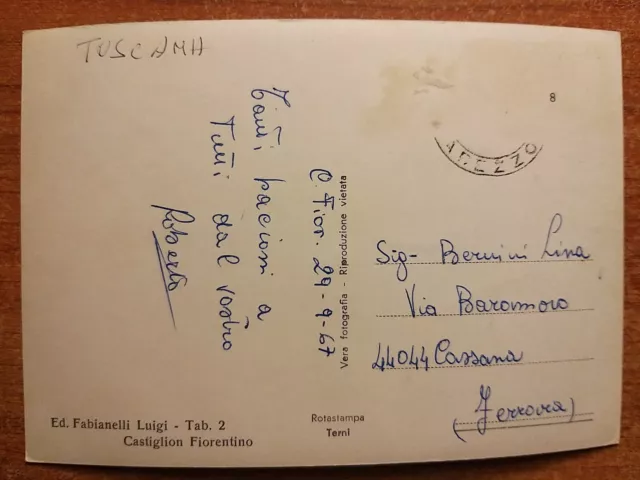 TUSCANA
Tanti bacioni a
Tutti dal vostro
Roberto
C. Fior. 29-9-67
Vera fotografia - Riproduzione vietata
8
AREZZO
Sig- Bernini Lina
Via Baromoro
44044 Cassana
(Ferrara)
Ed. Fabianelli Luigi - Tab. 2
Castiglion Fiorentino
Rotastampa
Terni